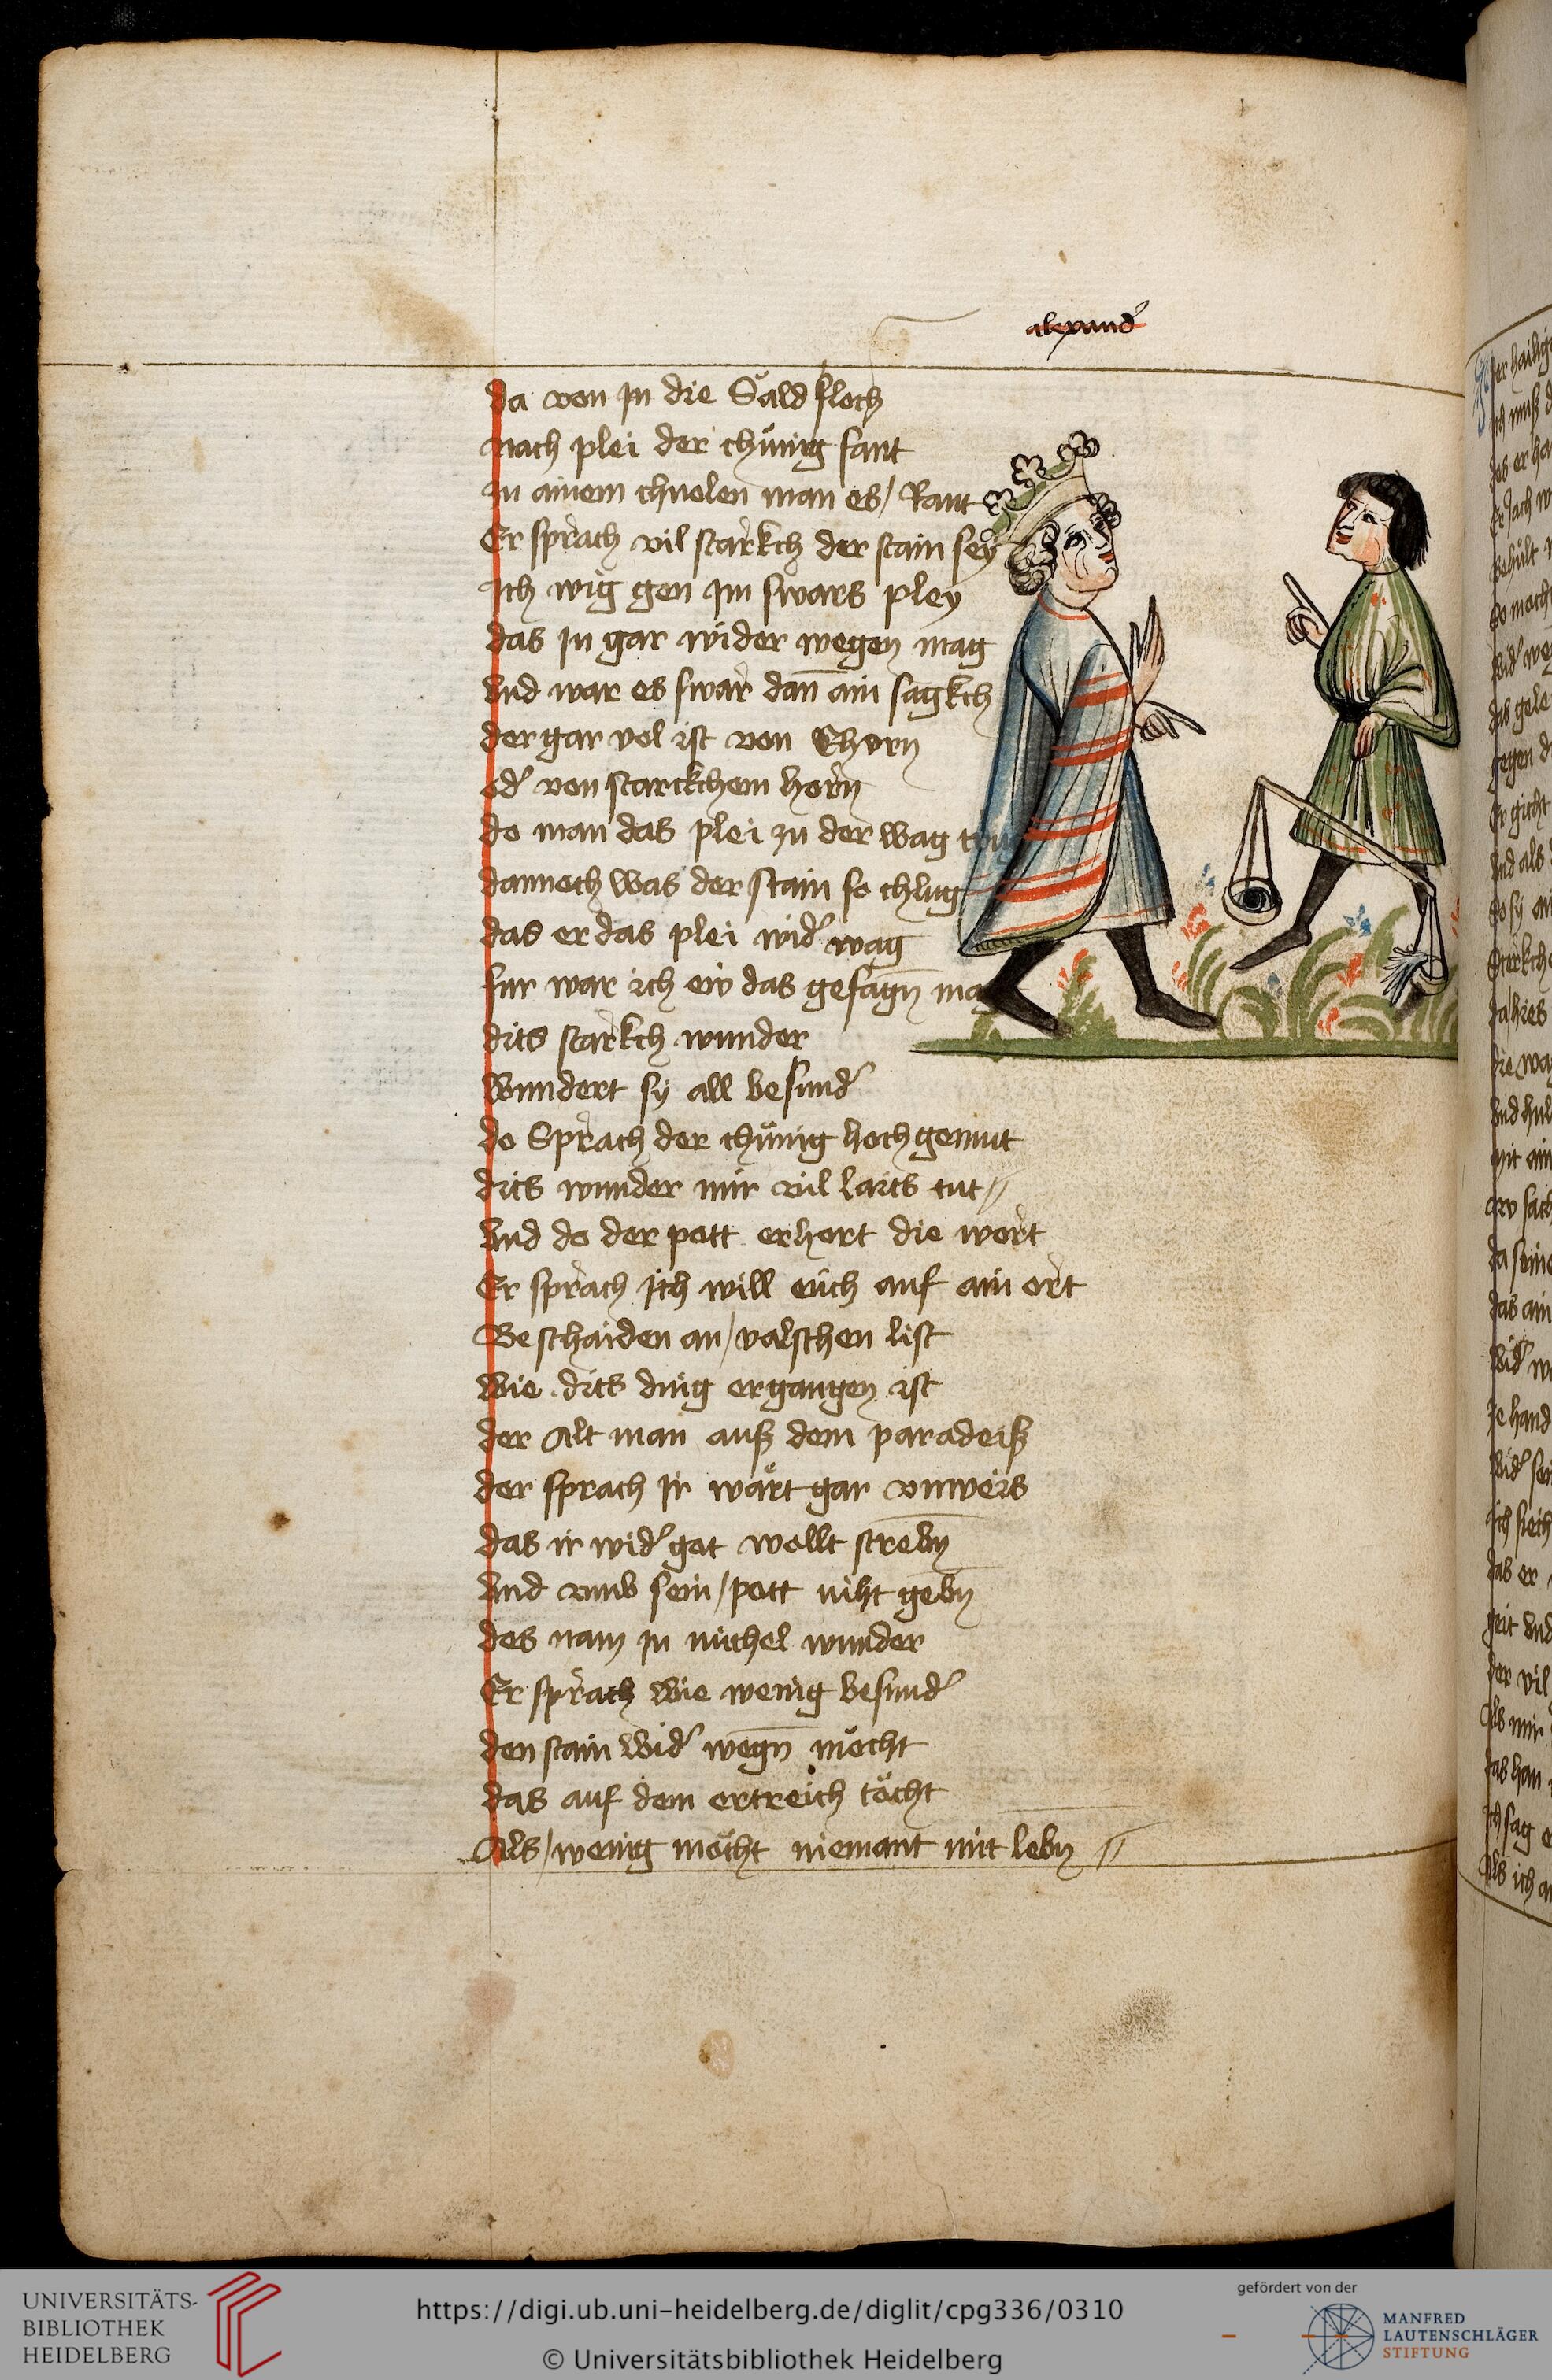 alexand̾
da von jn die Såld floch
nach plei der chünig sant
zu ainem chuolen man es / Rant
Er sprach vil starkch der stain sey
ich wig gen im swårs pley
das jn gar wider wegen mag
Vnd war es swår dan̄ ain sagkch
der gar vol ist von Chorn
od̾ von starckchem horn
do man das plei zu der wag trug
dannoch was der stain so chlug
das er das plei wid̾ wag
fur war ich ew das gesagn̄ mag
dits starkch wunder
Wundert sy all besund̾
do Sprach der chünig hochgemut
dits wunder mir vil laits tut //
Vnd do der pott erhort die wort
Er sprach ich will euch auf ain ort
Beschaiden an / valschen list
Wie dits ding ergangen ist
der Alt man auß dem paradeiß
der sprach Ir wårt gar vnweis
das ir wid̾ got wollt strebn̄
Vnd vmb sein / pott niht gebn̄
des nam jn michel wunder
Er sprach Wie wenig besund̾
den stain wid̾ wegn̄ möcht
das auf dem ertreich töcht
Als / wenig möcht niemant mit lebn̄ //
UNIVERSITÄTS-
BIBLIOTHEK
HEIDELBERG
https://digi.ub.uni-heidelberg.de/diglit/cpg336/0310
© Universitätsbibliothek Heidelberg
gefördert von der
MANFRED
LAUTENSCHLÄGER
STIFTUNG